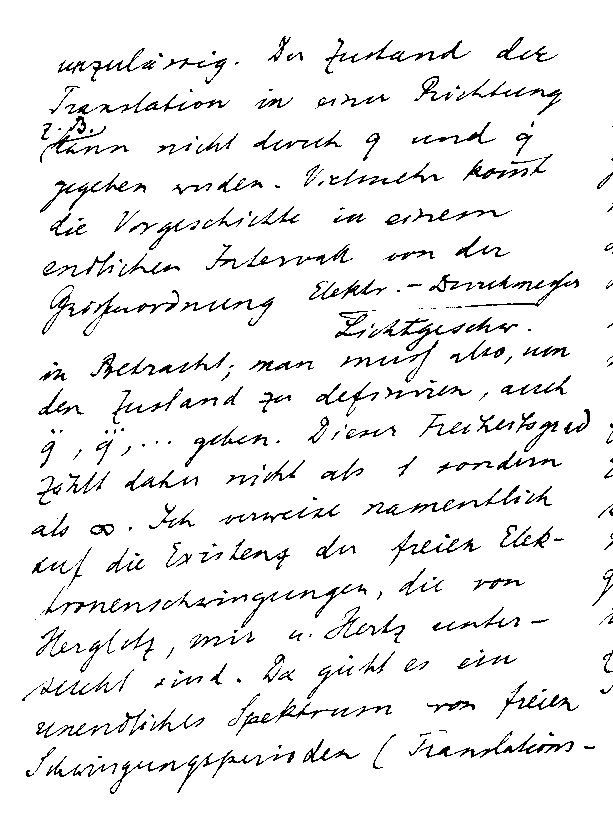 unzulässig. Der Zustand der
Translation in einer Richtung
z. B.
kann nicht durch q und q̇
gegeben werden. Vielmehr komt
die Vorgeschichte in einem
endlichen Intervall von der
Größenordnung Elektr.-Durchmesser
Lichtgeschw.
in Betracht; man muß also, um
den Zustand zu definiren, auch
q̈, q⃛, ... geben. Dieser Freiheitsgrad
zählt daher nicht als 1 sondern
als ∞. Ich verweise namentlich
auf die Existenz der freien Elek-
tronenschwingungen, die von
Herglotz, mir u. Hertz unter-
sucht sind. Da giebt es ein
unendliches Spektrum von freien
Schwingungsperioden (Translations-